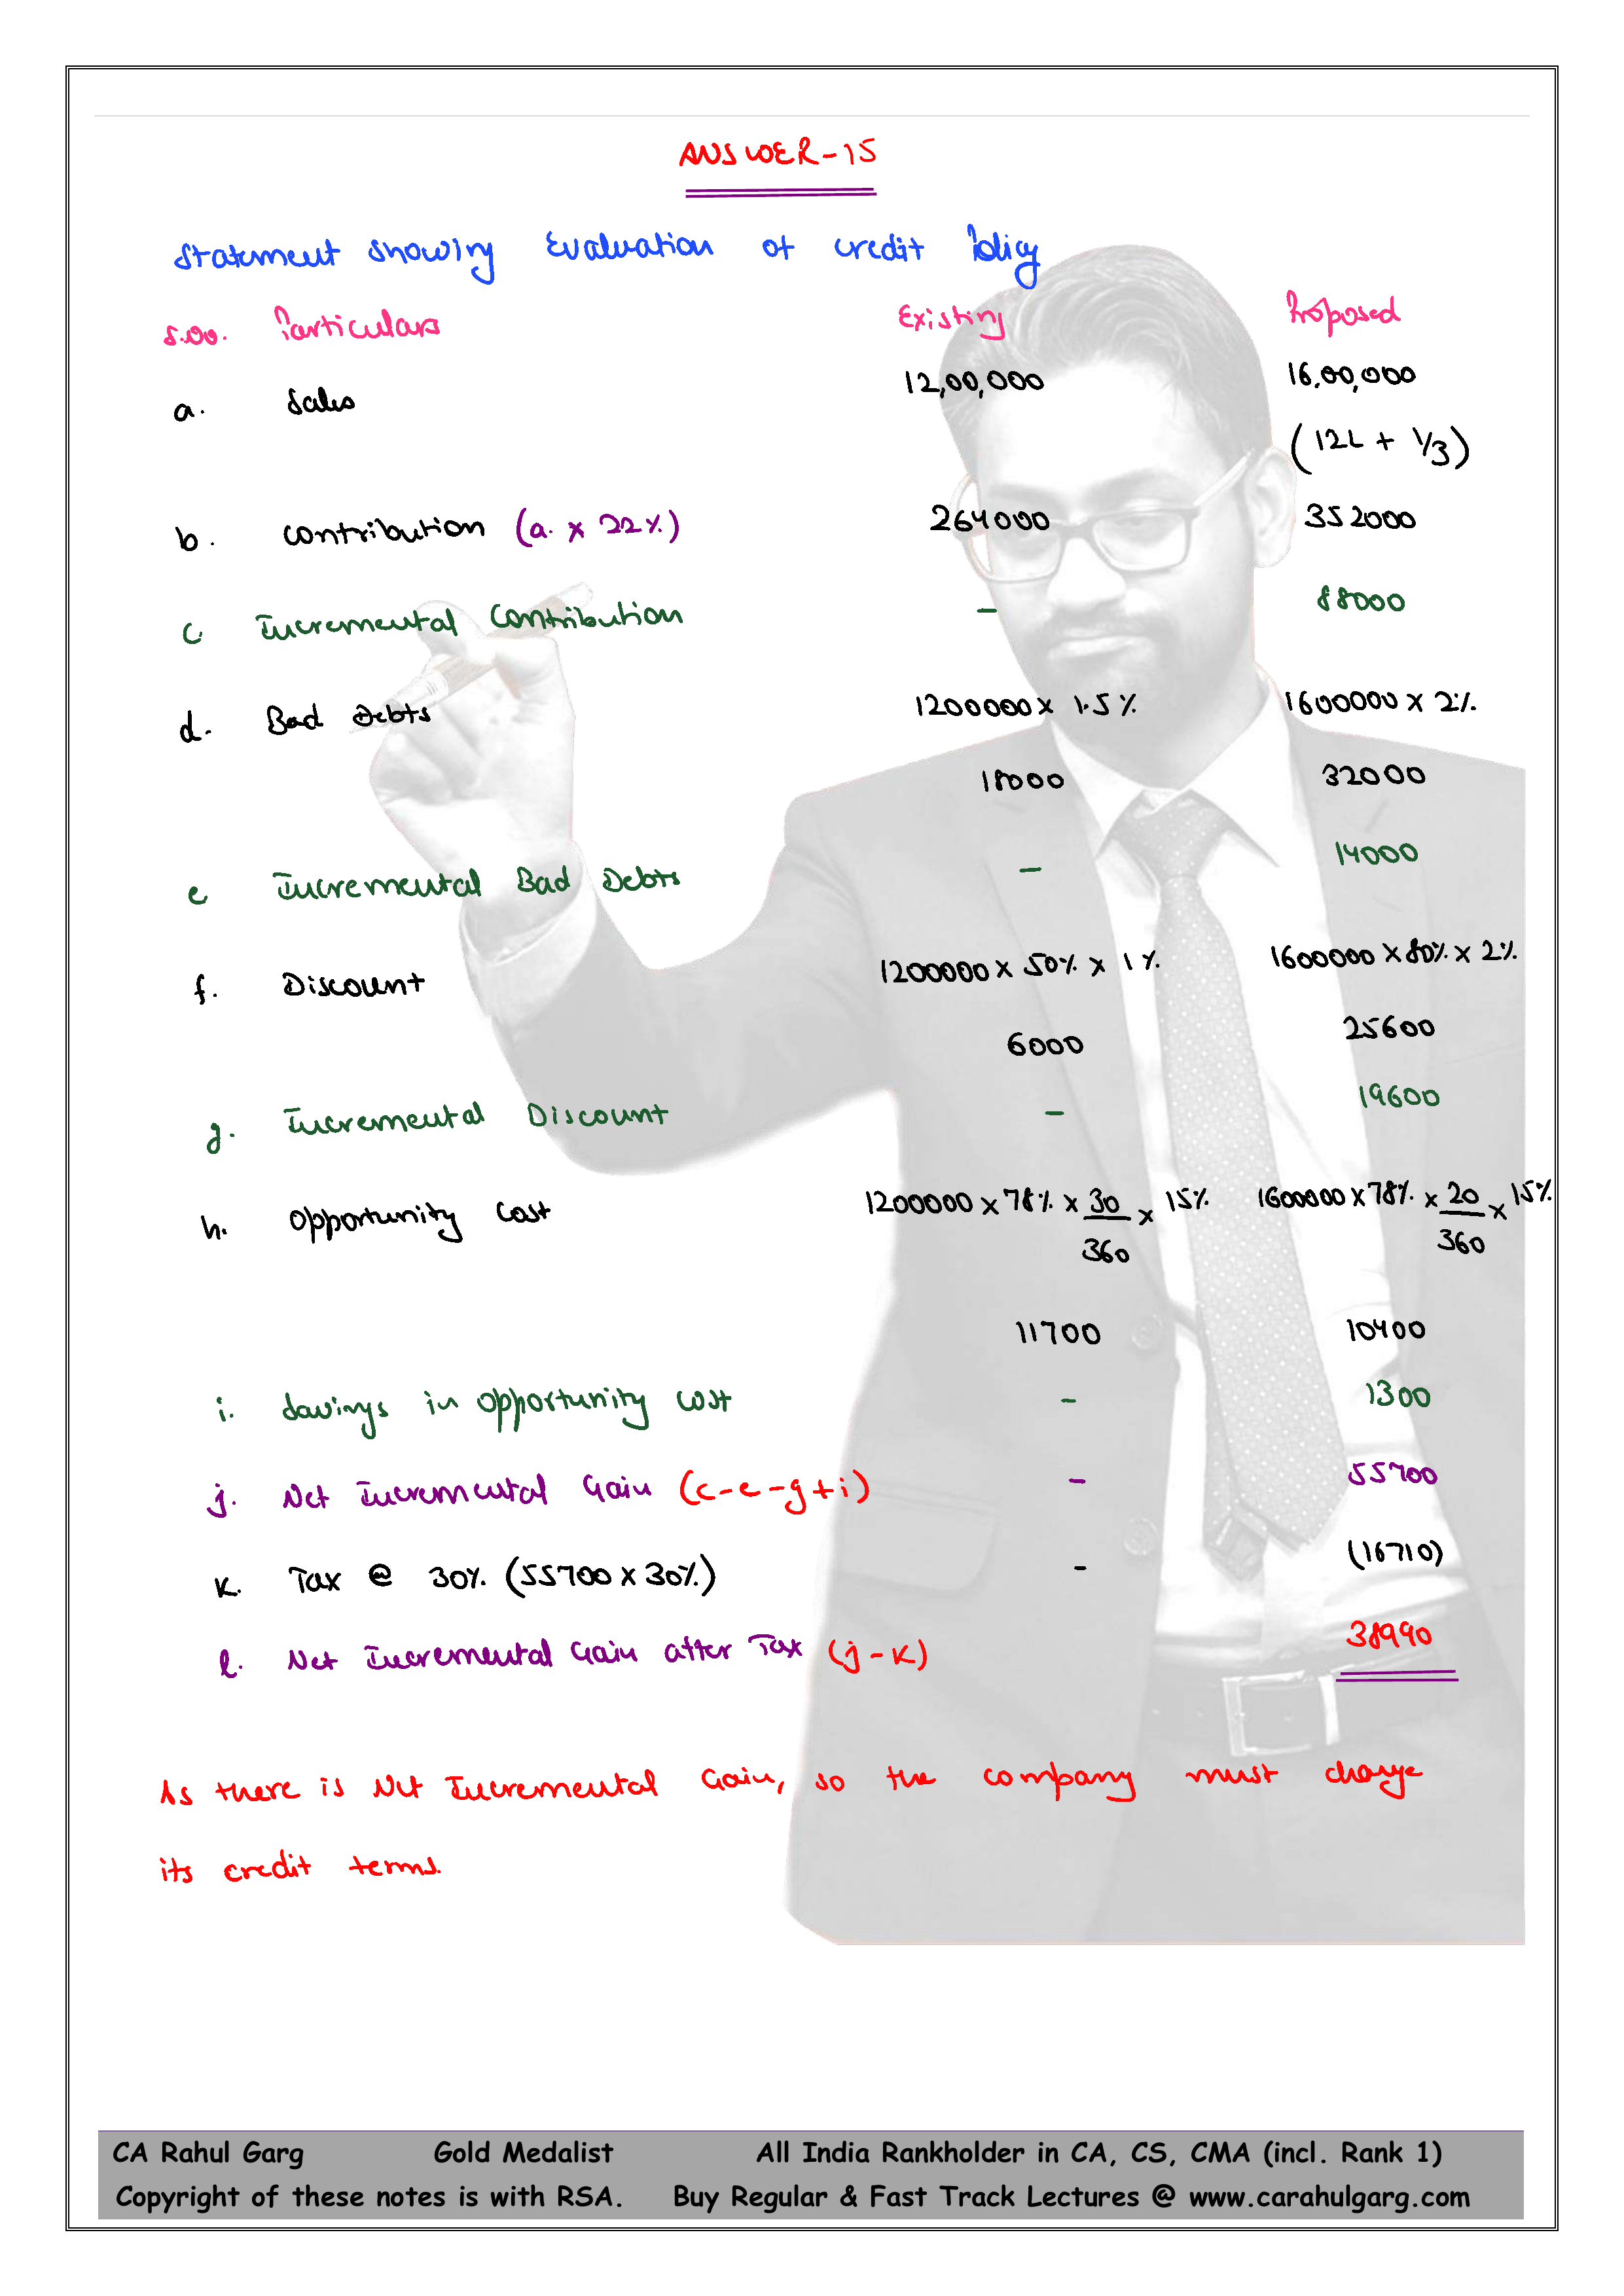 ANSWER-15
Statement showing Evaluation of credit Policy
S.no. Particulars Existing Proposed
a. Sales 12,00,000 16,00,000
(12L + 1/3)
b. contribution (a. x 22%) 264000 352000
c Incremental Contribution - 88000
d. Bad Debts 1200000 x 1.5% 1600000 x 2%
18000 32000
e Incremental Bad Debts - 14000
f. Discount 1200000 x 50% x 1% 1600000 x 80% x 2%
6000 25600
g. Incremental Discount - 19600
h. opportunity cost 1200000 x 78% x 30/360 x 15% 1600000 x 78% x 20/360 x 15%
11700 10400
i. Savings in opportunity cost - 1300
j. Net Incremental Gain (c-e-g+i) - 55700
K. Tax @ 30% (55700 x 30%) - (16710)
l. Net Incremental Gain after Tax (j-K) 38990
As there is Net Incremental Gain, so the company must change
its credit terms.
CA Rahul Garg Gold Medalist All India Rankholder in CA, CS, CMA (incl. Rank 1)
Copyright of these notes is with RSA. Buy Regular & Fast Track Lectures @ www.carahulgarg.com